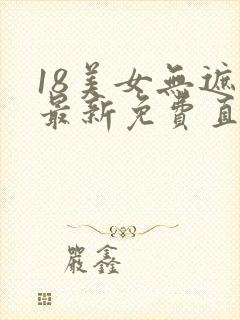 18美女無遮
最新免費直
嚴鑫